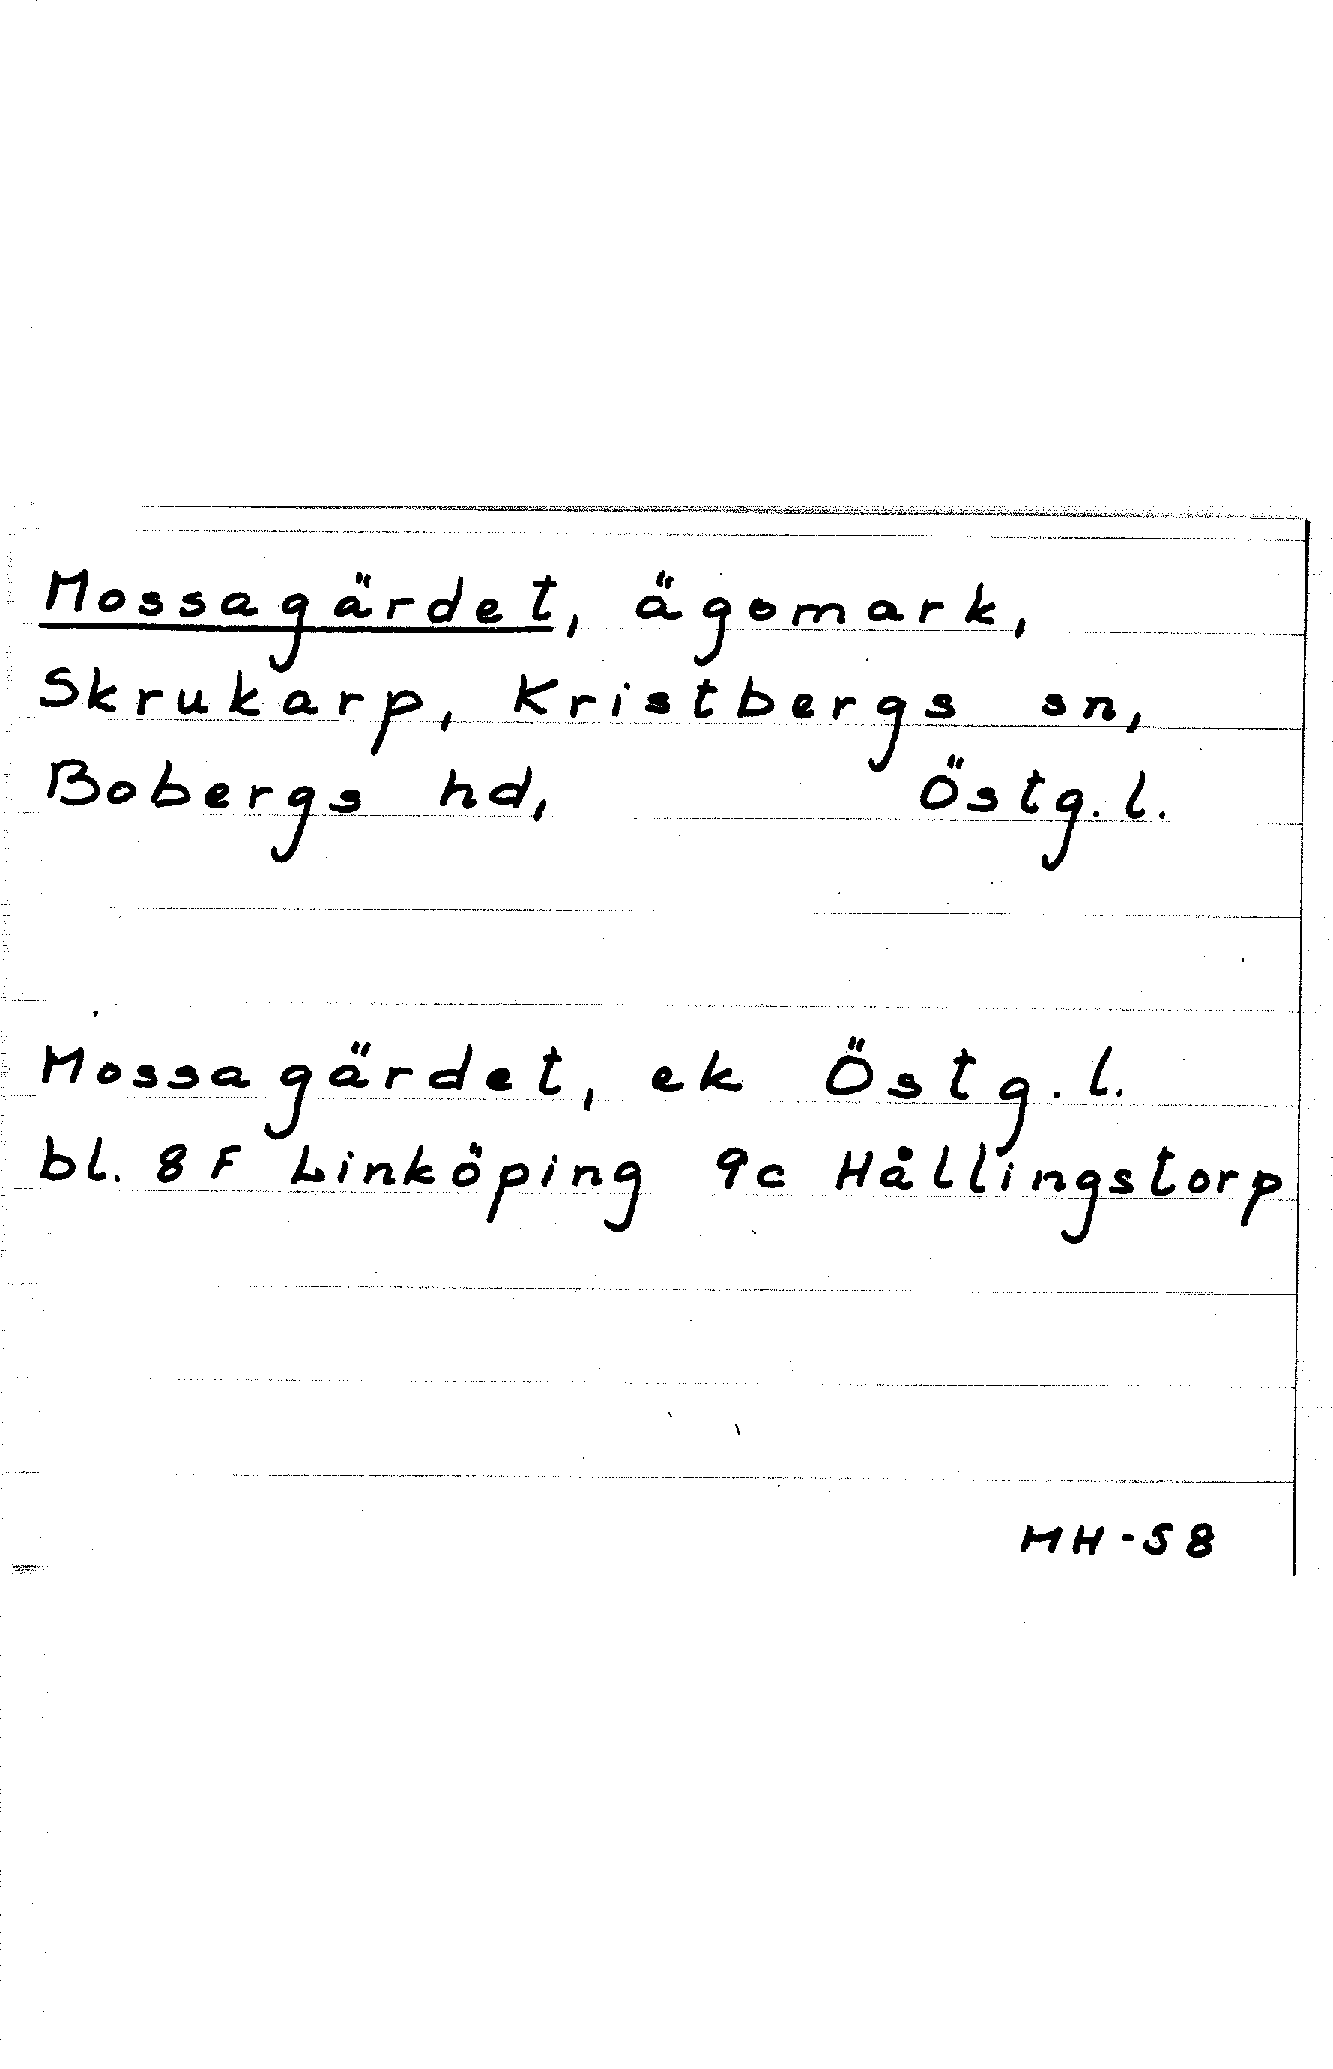 Mossagärdet, ägomark,
Skrukarp, Kristbergs sn,
Bobergs hd, Östg.l.
Mossagärdet, ek Östg.l.
bl. 8F Linköping 9c Hällingstorp
MH-58